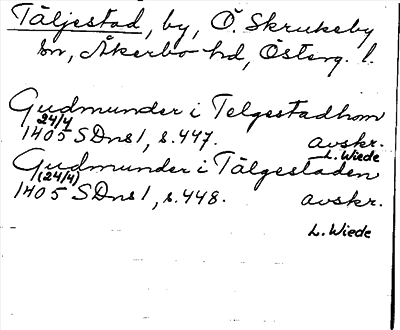 Täljestad, by, Ö. Skrukeby
sn, Åkerbo hd, Österg. l.
Gudmunder i Telgestadhom
24/4
1405 SDns1, s.447. avskr.
L. Wiede
Gudmunder i Tälgestaden
(24/4)
1405 SDns1, s.448. avskr.
L. Wiede